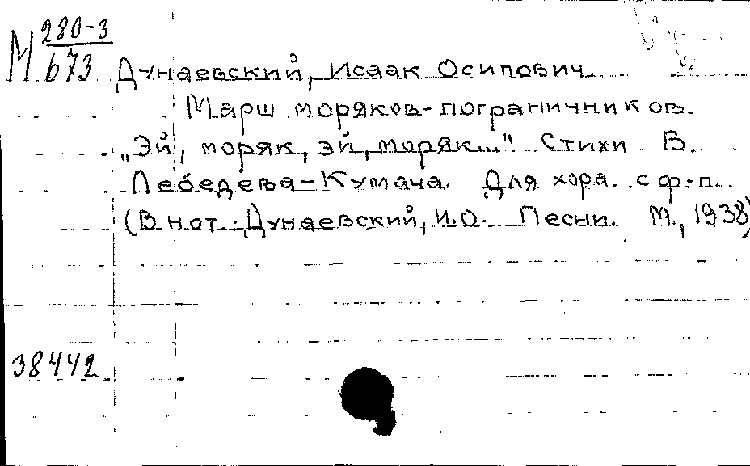 М 280-3
673
Дунаевский, Исаак Осипович
Марш моряков-пограничников.
„Эй, моряк, эй, моряк..." Стихи В.
Лебедева-Кумача. Для хора с ф.-п.
(В нот.: Дунаевский, И.О. Песни. М., 1938)
38442